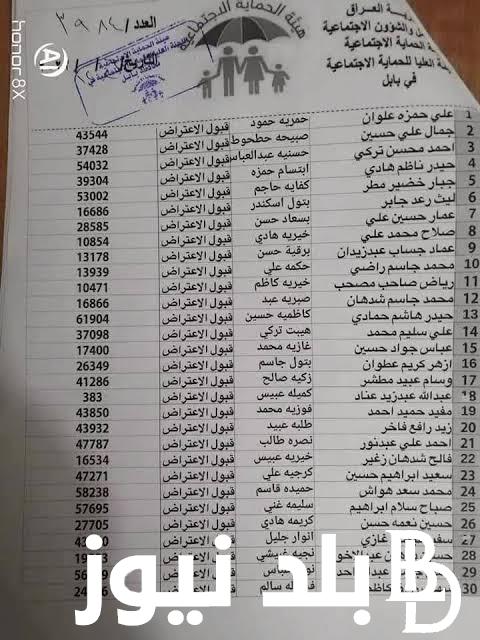 العدد/ ٣٩٨٤
هيئة الحماية الاجتماعية
العراق
والشؤون الاجتماعية
الحماية الاجتماعية
العليا للحماية الاجتماعية
في بابل
honor 8X
AI
1 علي حمزه علوان حمزيه حمود قبول الاعتراض 43544
2 جمال علي حسين صبيحه حطحوط قبول الاعتراض 37428
3 احمد محسن تركي حسنيه عبدالعباس قبول الاعتراض 54032
4 حيدر ناظم هادي ابتسام حمزه قبول الاعتراض 39304
5 جبار خضير مطر كفايه حاجم قبول الاعتراض 53002
6 ليث رعد جابر بتول اسكندر قبول الاعتراض 16686
7 عمار حسين علي بسعاد حسن قبول الاعتراض 28585
8 صلاح محمد علي خيريه هادي قبول الاعتراض 10854
9 عماد جساب عبدزيدان برقية حسن قبول الاعتراض 13178
10 محمد جاسم راضي حكمه علي قبول الاعتراض 13939
11 رياض صاحب مصحب خيريه كاظم قبول الاعتراض 10471
12 محمد جاسم شدهان صبريه عبد قبول الاعتراض 16866
13 حيدر هاشم حمادي كاظميه حسين قبول الاعتراض 61904
14 علي سليم محمد هيبت تركي قبول الاعتراض 37098
15 عباس جواد حسين غازيه محمد قبول الاعتراض 17400
16 ازهر كريم عطوان بتول جاسم قبول الاعتراض 26349
17 وسام عبيد مطشر زكيه صالح قبول الاعتراض 41286
18 عبدالله عبدزيد عناد كميله عبيس قبول الاعتراض 383
19 مفيد حميد احمد فوزيه محمد قبول الاعتراض 43850
20 زيد رافع فاخر طلبه عبيد قبول الاعتراض 43932
21 احمد علي عبدنور نصره طالب قبول الاعتراض 47787
22 فالح شدهان زغير خيريه عبيس قبول الاعتراض 16534
23 سعيد ابراهيم حسين كرجيه علي قبول الاعتراض 47271
24 محمد سعد هواش حميده قاسم قبول الاعتراض 58238
25 صباح سلام ابراهيم سليمه غني قبول الاعتراض 57695
26 حسين نعمه حسن كريمه هادي قبول الاعتراض 27705
27 غازي انوار جليل قبول الاعتراض
28 نجيه غبيشي قبول الاعتراض
29 قبول الاعتراض
30 سالم قبول الاعتراض
بلد نيوز